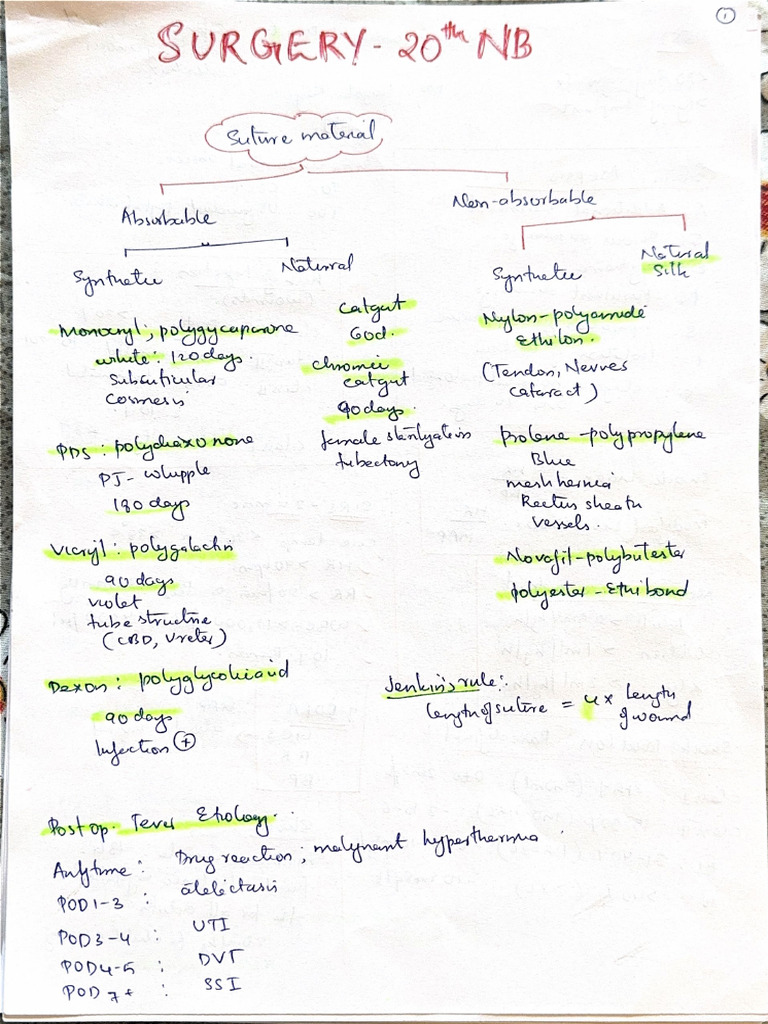 1
SURGERY - 20th NB
Suture material
Absorbable
Non-absorbable
Synthetic
Natural
Synthetic
Natural
Silk
Monocryl; polyglycaprone
white: 120 days.
Subcuticular
Cosmesis
PDS: polydiaxonone
PJ - whipple
180 days
Vicryl: polygalactin
90 days
violet
tube structure
(CBD, Ureter)
Dexon: polyglycolicacid
90 days
Infection +
Catgut
60d.
Chromic
catgut
90 days.
female sterilization
tubectomy
Nylon-polyamide
Ethilon.
(Tendon, Nerves
cataract)
Prolene-polypropylene
Blue
mesh hernia
Rectus sheath
vessels.
Novafil-polybutester
polyester-Ethibond
Jenkin's rule:
length of suture = 4 x length
of wound
Post op. Fever Etiology.
Anytime: Drug reaction; malignant hyperthermia
POD1-3: atelectasis
POD3-4: UTI
POD4-5: DVT
POD 7+: SSI